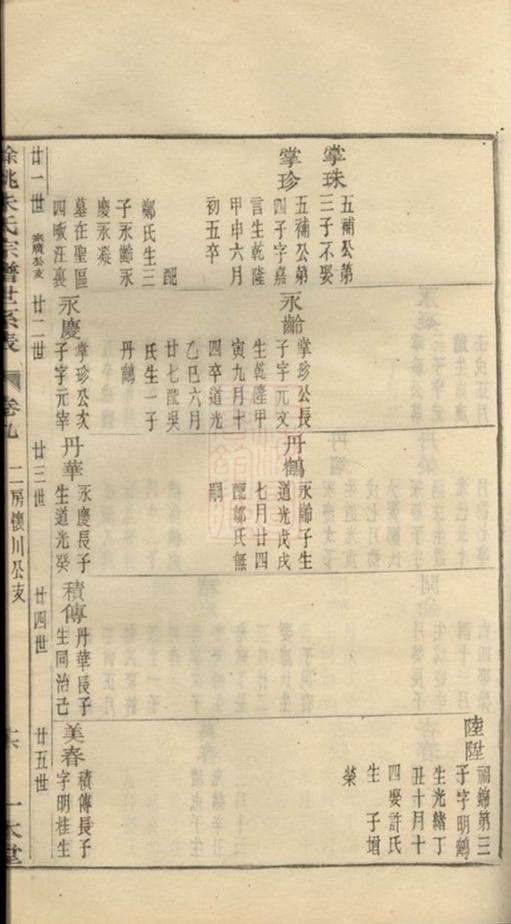 掌珠
五補公第
三子不娶
掌珍
五補公第
四子字嘉
言生乾隆
甲申六月
初五卒
配
鄭氏生三
子永齡永
慶永凝
墓在聖區
四畈汪裏
廿一世
永齡
掌珍公長
子字元文
生乾隆甲
寅九月十
四卒道光
乙巳六月
廿七配吳
氏生一子
丹鶴
永慶
掌珍公次
子字元宰
廿二世
丹鶴
永齡子生
道光戊戌
七月廿四
配鄔氏無
嗣
丹華
永慶長子
生道光癸
廿三世
積傳
丹華長子
生同治己
廿四世
陸陞
福錦第三
子字明鶴
生光緒丁
丑十月十
四娶許氏
生 子垣
榮
美春
積傳長子
字明桂生
廿五世
餘姚朱氏宗譜世系表
卷九
二房懷川公支
一本堂